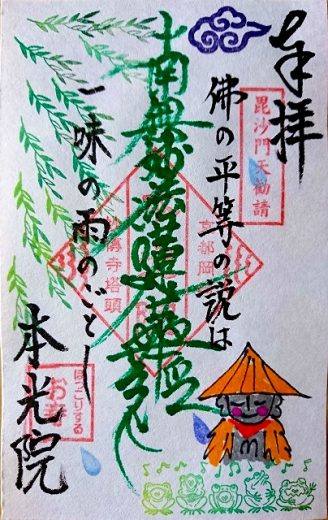 奉拝
毘沙門天勧請
佛の平等の説は
京都岡
南無妙法蓮華経
寺塔頭
一味の雨のごとし
本光院
ほっこりする
お寺